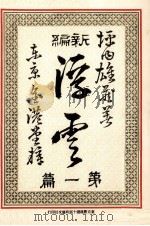 坪内雄蔵著
新編
浮雲
第一篇
東京金港堂梓